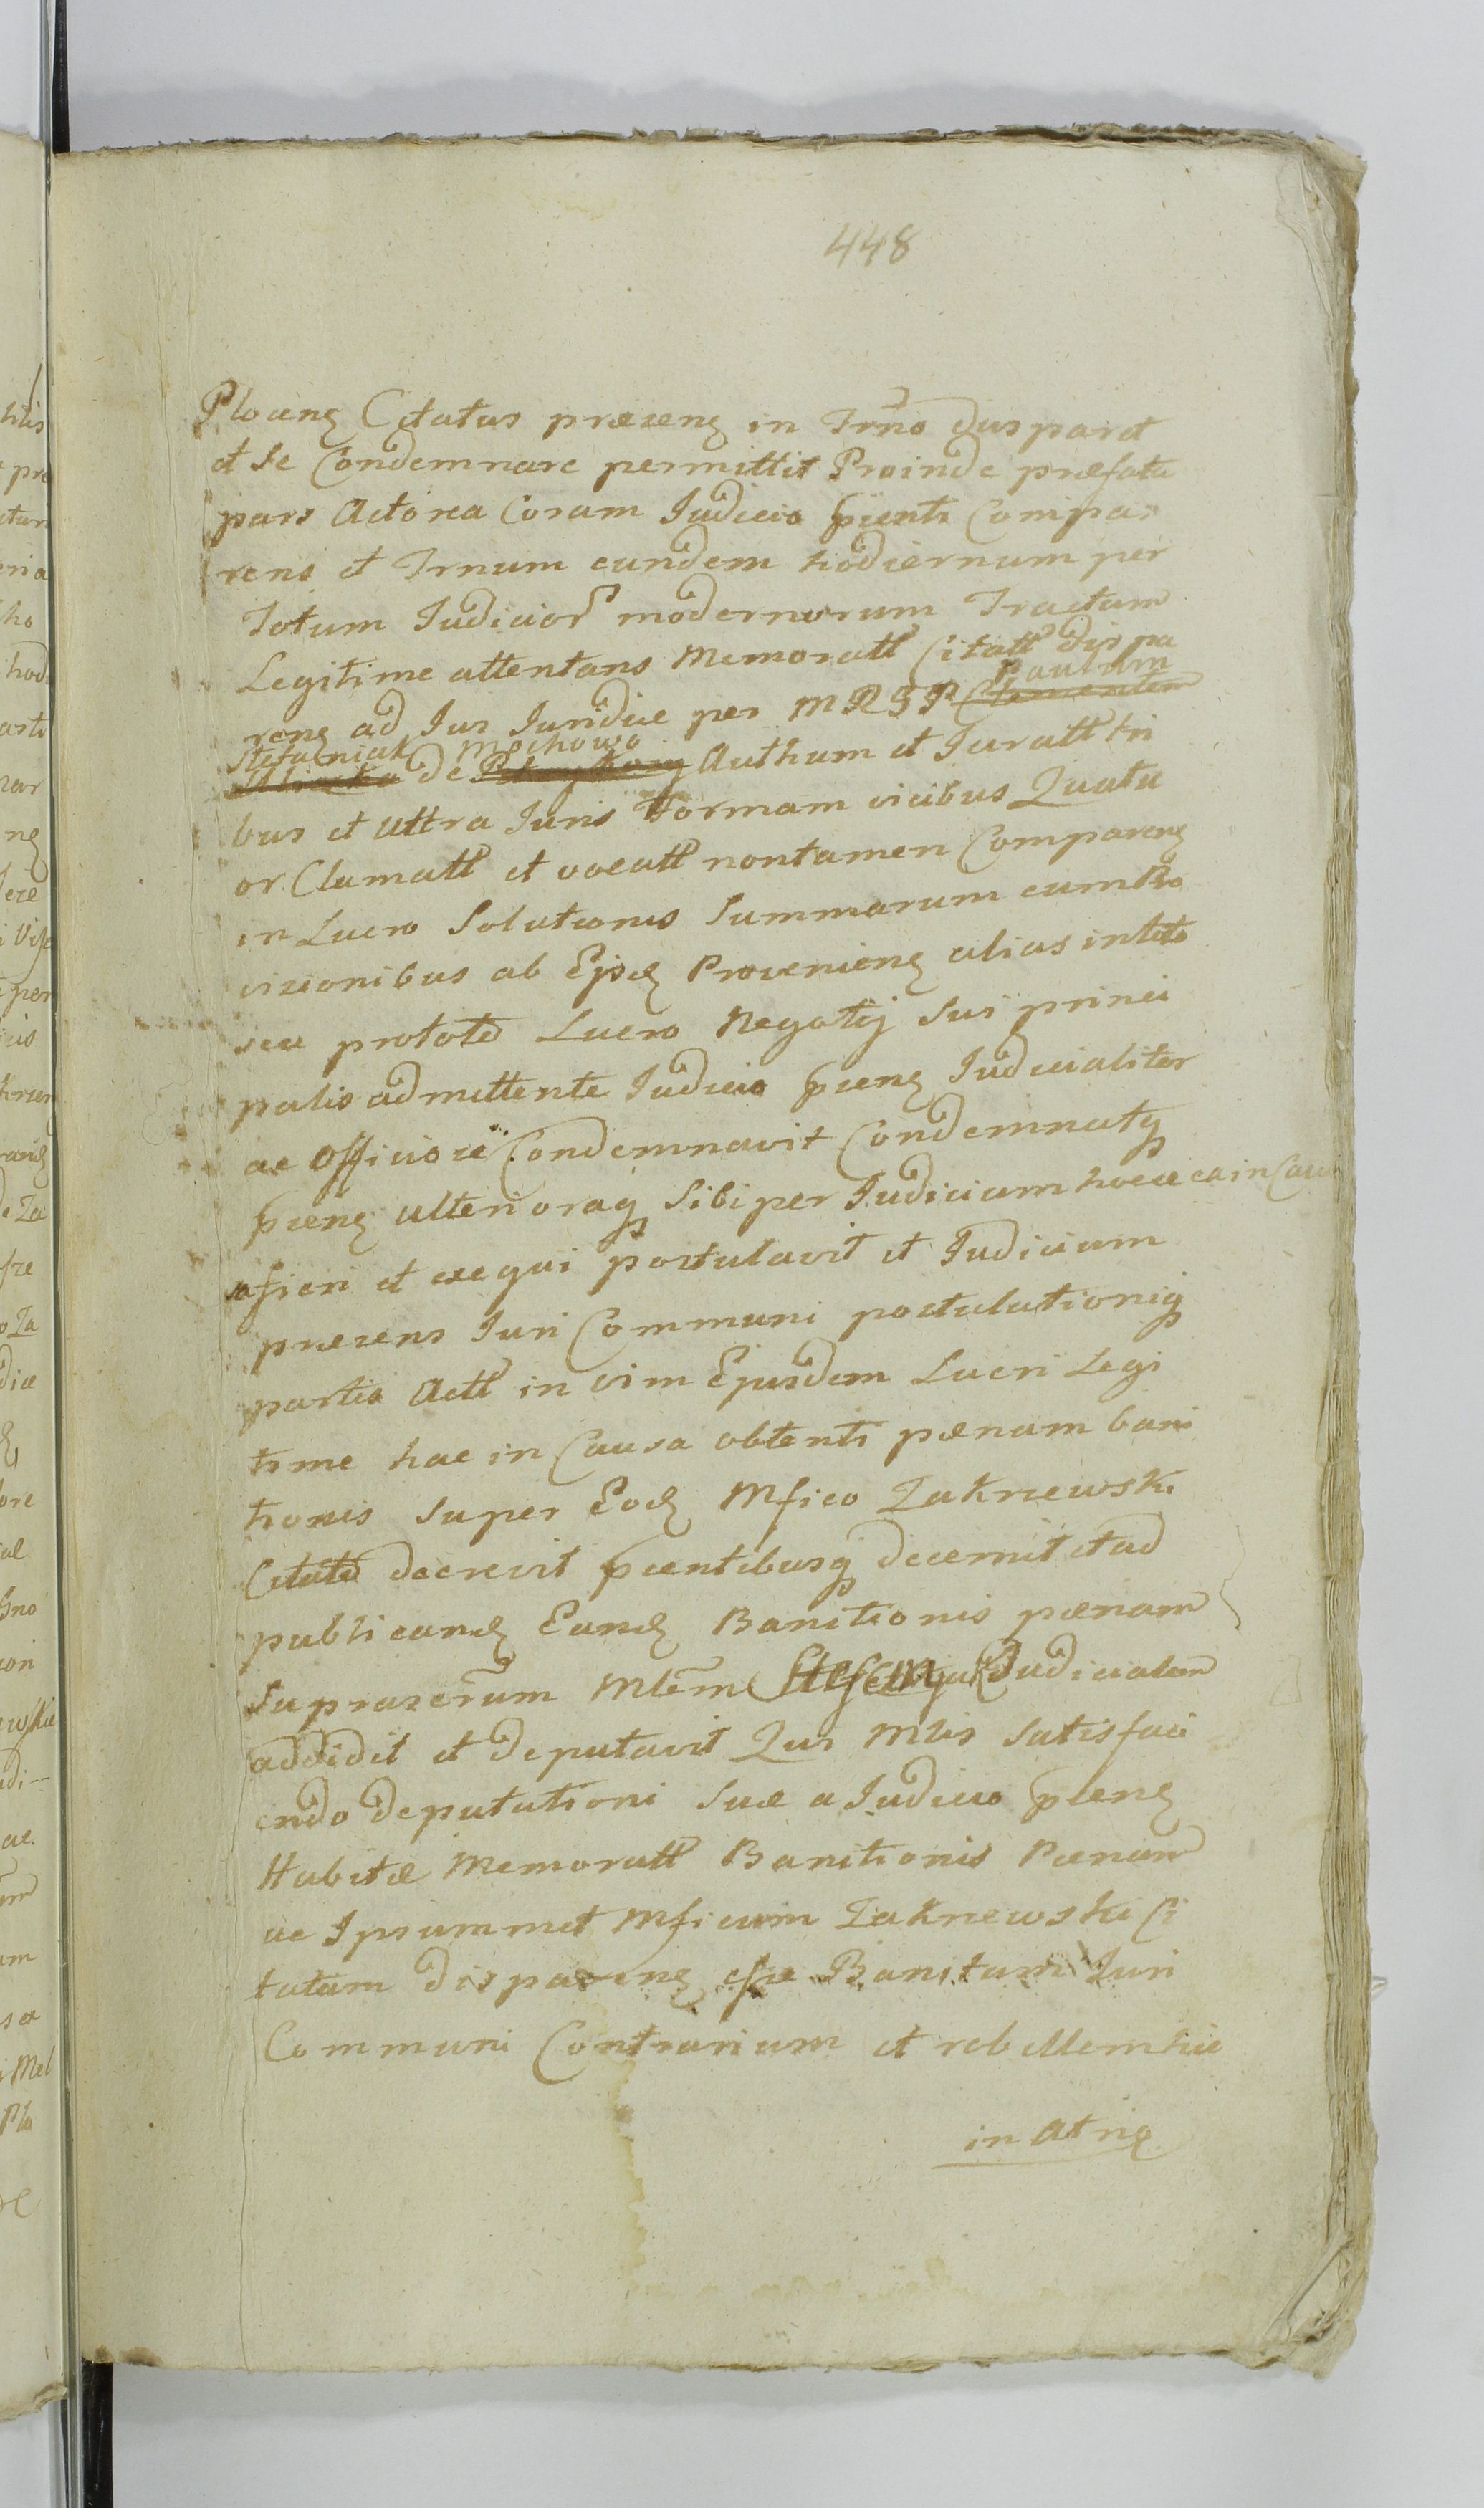 448
Plocens Citatus præsens in Trno dusparet
et Se Condemnare permittit Proinde præfata
pars Actorea Coram Judicio pñenti Compa
rens et Trnum eundem hodiernum per
Totum Judicior modernorum Tractum
Legitime attentans Memoratt Citatt dispa
Paulum
rens ad Jus Juridice per MRSP Clementem
Stefaniak Mochowo
de Authum et Juratt tri
bus et ultra Juris Formam vicibus Quatu
or Clamatt et vocatt non tamen Comparens
in Lucro Solutionis Summarum cum Pro
visionibus ab Ejsd Proveniens alias in toto
seu prototo Lucro Negotij Sui princi
palis admittente Judicio pñens Judicialiter
ac Officiose Condemnavit Condemnatq
pñens ulterioraq Sibi per Judicium hocce ea in Cau
sa fieri et exequi postulavit et Judicium
præsens Juri Communi postulationiq
partis Actt in vim Ejusdem Lucri Legi
time hac in Causa obtenti pænam bani
tionis Super Eod Mfico Zakrzewski
Citato decrevit pñentibusq decernit et ad
publicand Eand Banitionis pænam
Suprascrum Mlem Judicialem
addidit et deputavit Qui Mlis Satisfaci
endo deputationi Suæ a Judicio pñens
Habitæ Memoratt Banitionis Pænam
ac Ipsummet Mficum Zakrzewski Ci
tatum disparens esse Banitum Juri
Communi Contrarium et rebellem hic
in Atrio